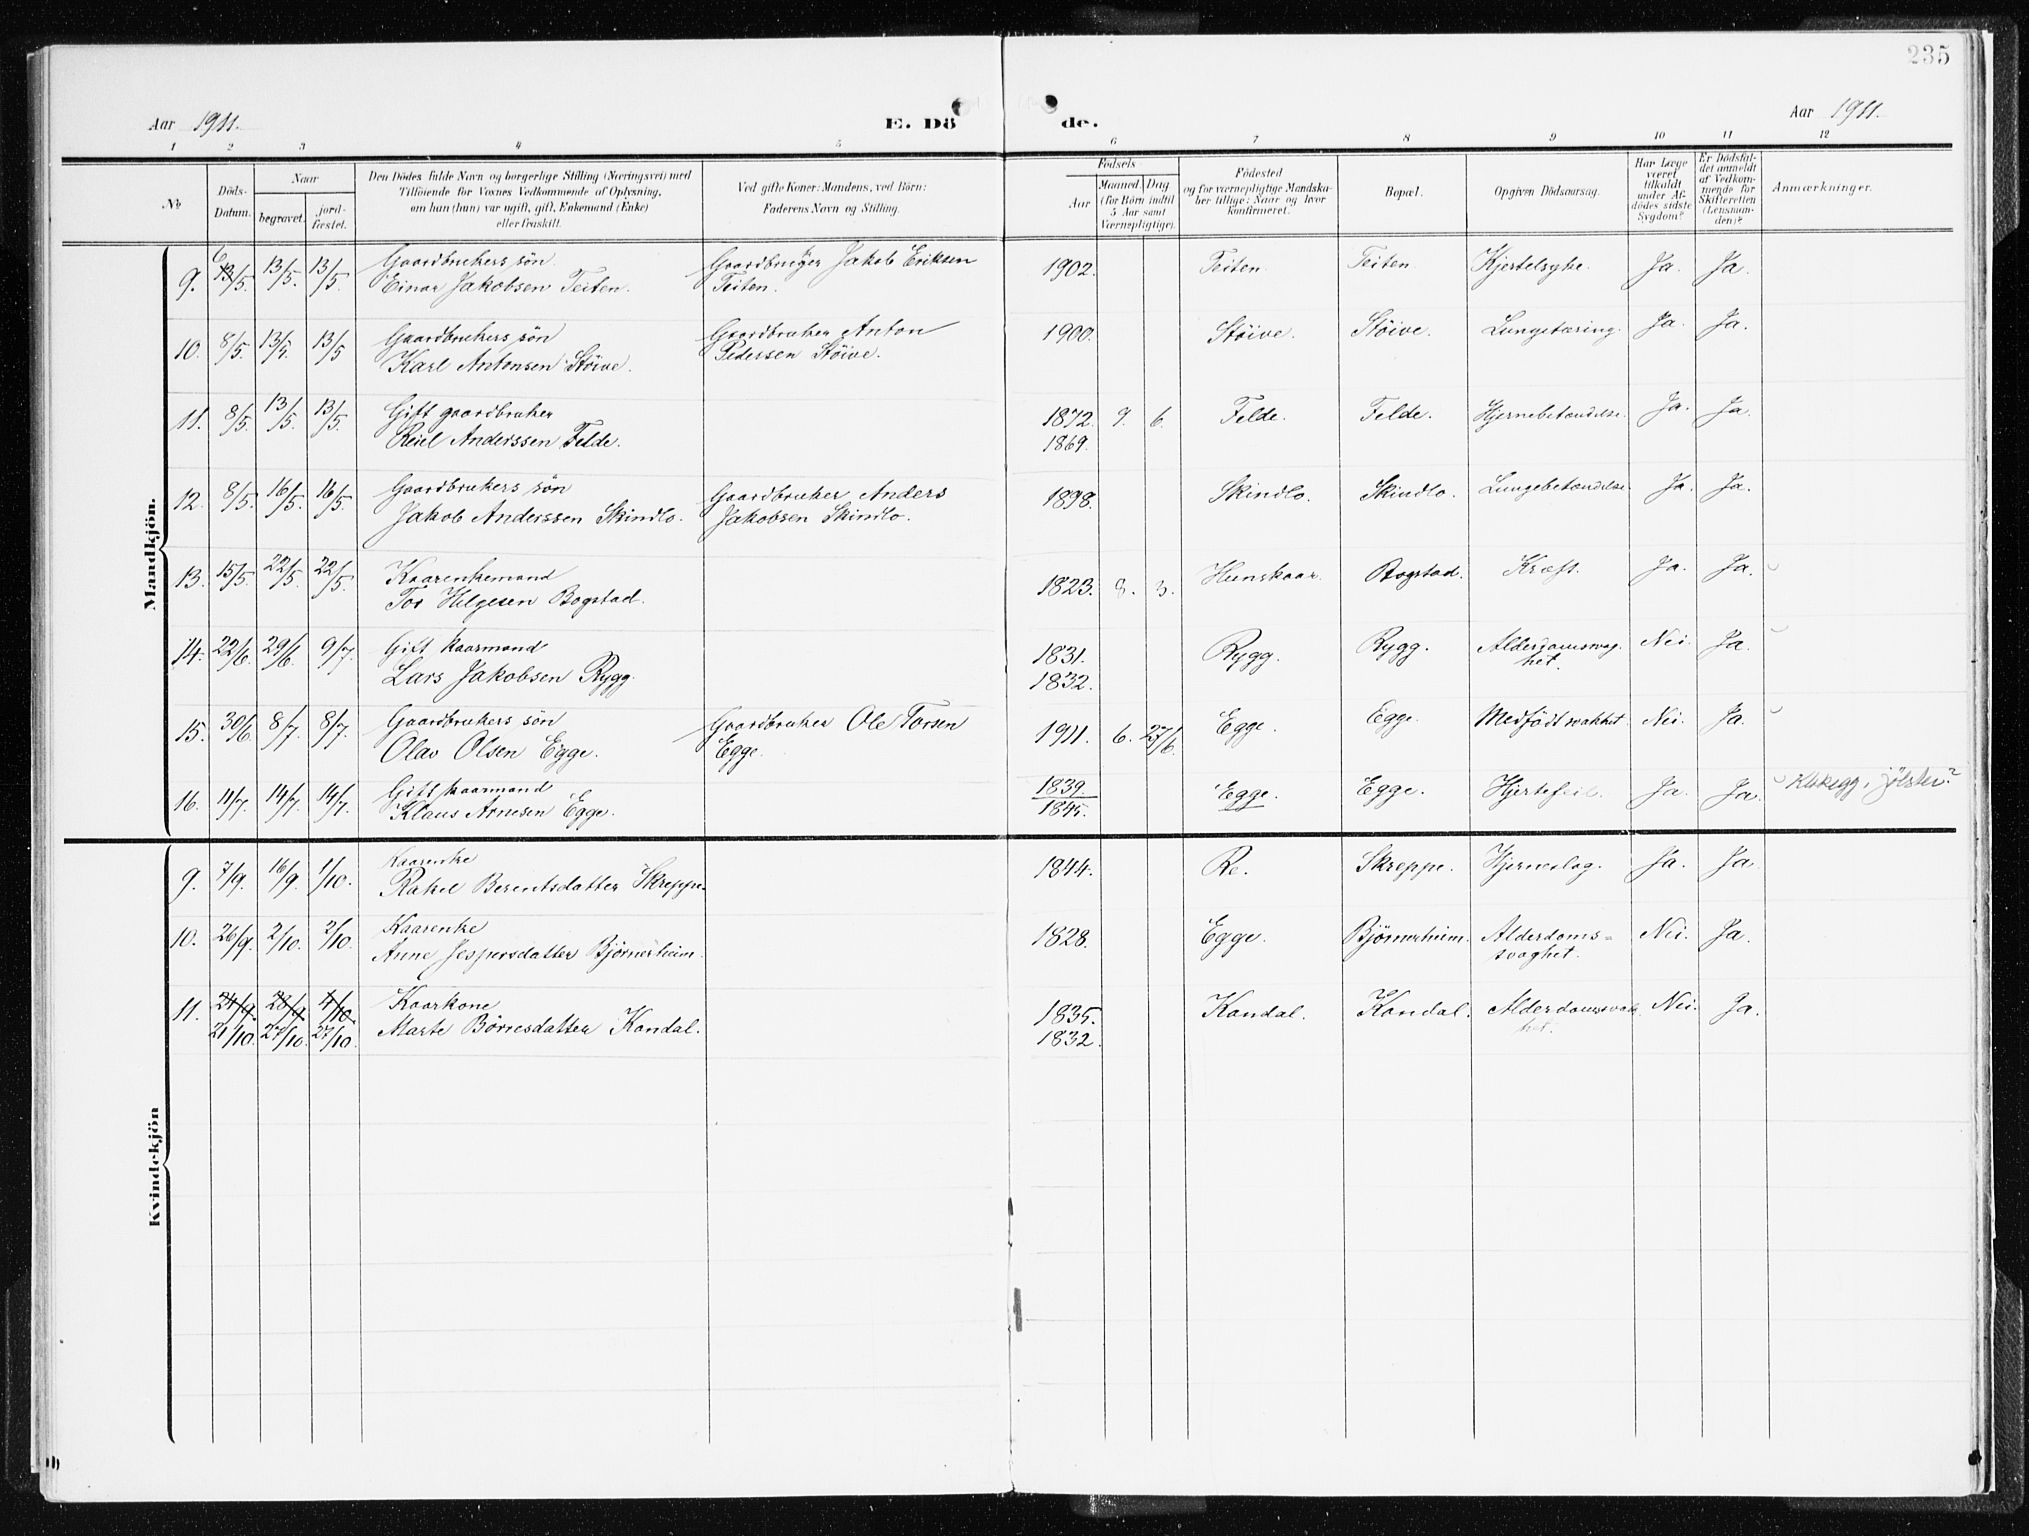 235
Aar 1911.
E. Dö de.
Aar 1911.
1 2 3 4 5 6 7 8 9 10 11 12
No
Döds-
Datum.
Naar
begravet.
jord-
fæstet.
Den Dödes fulde Navn og borgerlige Stilling (Næringsvei) med
Tilföiende for Voxnes Vedkommende af Oplysning,
om han (hun) var ugift, gift, Enkemand (Enke)
eller fraskilt.
Ved gifte Koner: Mandens, ved Börn:
Faderens Navn og Stilling.
Födsels
Aar
Maaned. Dag
(for Börn indtil
5 Aar samt
Værnepligtige).
Födested
og for værnepligtige Mandska-
ber tillige: Naar og hvor
konfirmeret.
Bopæl.
Opgiven Dödsaarsag.
Har Læge
været
tilkaldt
under Af-
dödes sidste
Sygdom?
Er Dödsfal-
det anmeldt
af Vedkom-
mende for
Skifteretten
(Lensman-
den)?
Anmærkninger.
Mandkjön.
9. 6 13/5. 13/5. 13/5. Gaardbrukers søn Gaardbruger Jakob Eriksen 1902. Teiten. Teiten Kjertelsyke. Ja. Ja.
Einar Jakobsen Teiten. Teiten.
10. 8/5. 13/5. 13/5 Gaardbrukers søn Gaardbruker Anton 1900. Støive. Støive. Lungetæring. Ja. Ja.
Karl Antonsen Støive. Pedersen Støive.
11. 8/5. 13/5. 13/5. Gift gaardbruker 1872. 9. 6. Felde. Felde. Hjernebetændelse. Ja. Ja.
Reiel Anderssen Felde. 1869.
12. 8/5. 16/5. 16/5. Gaardbrukers søn Gaardbruker Anders 1898. Skindlo. Skindlo. Lungebetændelse. Ja. Ja.
Jakob Anderssen Skindlo. Jakobsen Skindlo.
13. 15/5. 22/5. 22/5. Kaarenkemand 1823. 8. 3. Hunskaar. Bogstad. Kræft. Ja. Ja.
Tor Helgesen Bogstad.
14. 22/6. 29/6. 9/7. Gift kaarmand 1831. Rygg. Rygg. Alderdomsvag- Nei. Ja.
Lars Jakobsen Rygg. 1832. het.
15. 30/6. 8/7. 8/7. Gaardbrukers søn Gaardbruker Ole Torsen 1911. 6. 27/6. Egge. Egge. Medfødt svakhet. Nei. Ja.
Olav Olsen Egge. Egge.
16. 4/7. 14/7. 14/7. Gift kaarmand 1839. Egge. Egge. Hjertefeil. Ja. Ja. Klakegg i Jölster?
Klaus Arnesen Egge. 1845.
Kvindekjön
9. 7/9. 16/9. 1/10. Kaarenke 1844. Re. Skreppe. Hjerneslag. Ja. Ja.
Rakel Berentsdatter Skreppe.
10. 26/9. 2/10. 2/10. Kaarenke 1828. Egge. Bjørnerheim. Alderdoms= Nei. Ja.
Anne Jespersdatter Bjørnerheim. svaghet.
11. 24/9. 28/9. 4/10. Kaarkone 1835. Kandal. Kandal. Alderdomssvak Nei. Ja.
21/10. 27/10. 27/10. Marte Børresdatter Kandal. 1832. het.